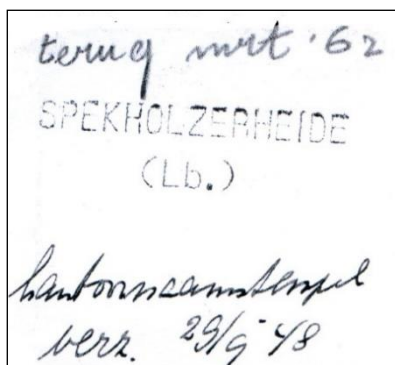 terug mrt '62
SPEKHOLZERHEIDE
(Lb.)
kantoornaamstempel
verz. 29/9 '48